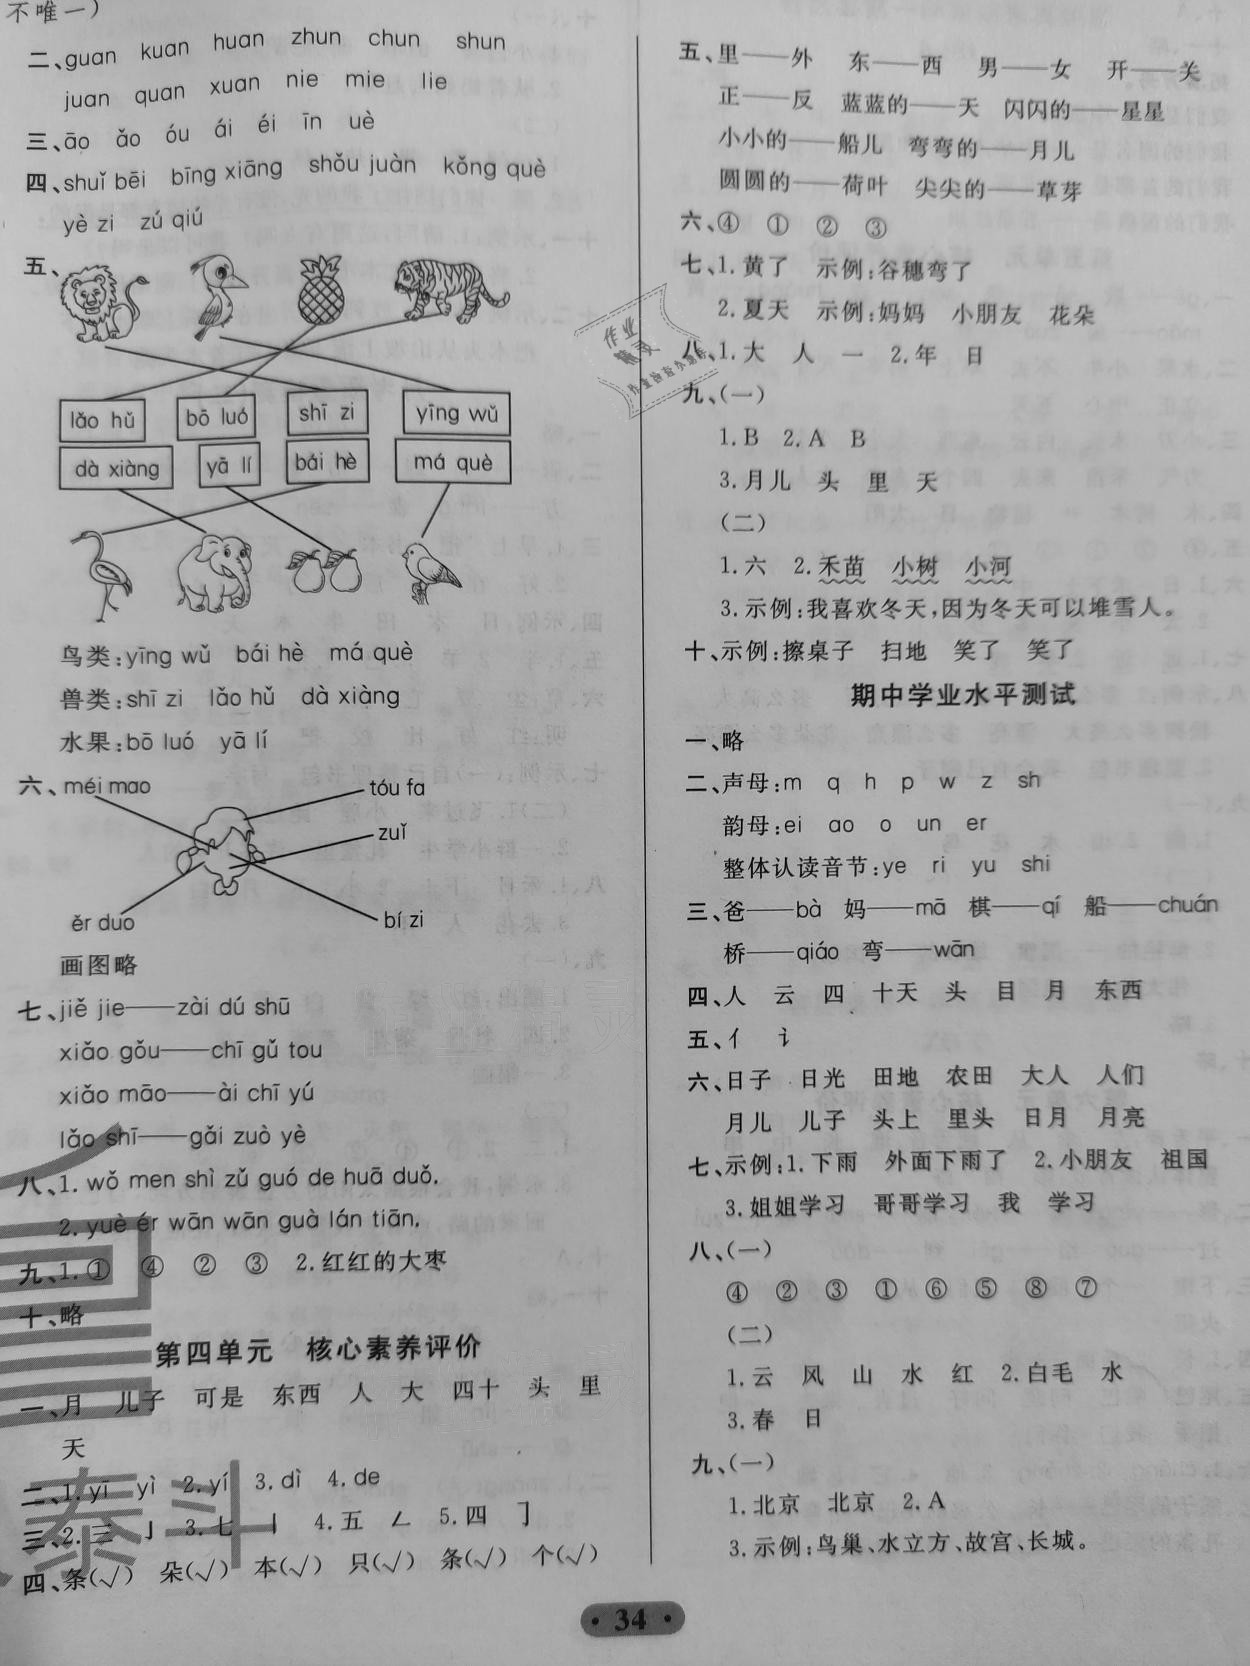 不唯一)
二、guan kuan huan zhun chun shun
juan quan xuan nie mie lie
三、āo ǎo óu ái éi īn uè
四、shuǐ bēi bīng xiāng shǒu juàn kǒng què
yè zi zú qiú
五、
lǎo hǔ bō luó shī zi yīng wǔ
dà xiàng yā lí bái hè má què
鸟类:yīng wǔ bái hè má què
兽类:shī zi lǎo hǔ dà xiàng
水果:bō luó yā lí
六、méi mao tóu fa
zuǐ
ěr duo bí zi
画图略
七、jiě jie——zài dú shū
xiǎo gǒu——chī gǔ tou
xiǎo māo——ài chī yú
lǎo shī——gǎi zuò yè
八、1. wǒ men shì zǔ guó de huā duǒ.
2. yuè ér wān wān guà lán tiān.
九、1.① ④ ② ③ 2.红红的大枣
十、略
第四单元 核心素养评价
一、月 儿子 可是 东西 人 大 四十 头 里
天
二、1.yī yì 2.yí 3.dì 4.de
三、2.三 亅 3.七 丨 4.五 ㄥ 5.四 ㇆
四、条(√) 朵(√) 本(√) 只(√) 条(√) 个(√)
五、里——外 东——西 男——女 开——关
正——反 蓝蓝的——天 闪闪的——星星
小小的——船儿 弯弯的——月儿
圆圆的——荷叶 尖尖的——草芽
六、④ ① ② ③
七、1.黄了 示例:谷穗弯了
2.夏天 示例:妈妈 小朋友 花朵
八、1.大 人 一 2.年 日
九、(一)
1.B 2.A B
3.月儿 头 里 天
(二)
1.六 2.禾苗 小树 小河
3.示例:我喜欢冬天,因为冬天可以堆雪人。
十、示例:擦桌子 扫地 笑了 笑了
期中学业水平测试
一、略
二、声母:m q h p w z sh
韵母:ei ao o un er
整体认读音节:ye ri yu shi
三、爸——bà 妈——mā 棋——qí 船——chuán
桥——qiáo 弯——wān
四、人 云 四 十天 头 目 月 东西
五、亻 讠
六、日子 日光 田地 农田 大人 人们
月儿 儿子 头上 里头 日月 月亮
七、示例:1.下雨 外面下雨了 2.小朋友 祖国
3.姐姐学习 哥哥学习 我 学习
八、(一)
④ ② ③ ① ⑥ ⑤ ⑧ ⑦
(二)
1.云 风 山 水 红 2.白毛 水
3.春 日
九、(一)
1.北京 北京 2.A
3.示例:鸟巢、水立方、故宫、长城。
作业
精灵
泰斗
· 34 ·